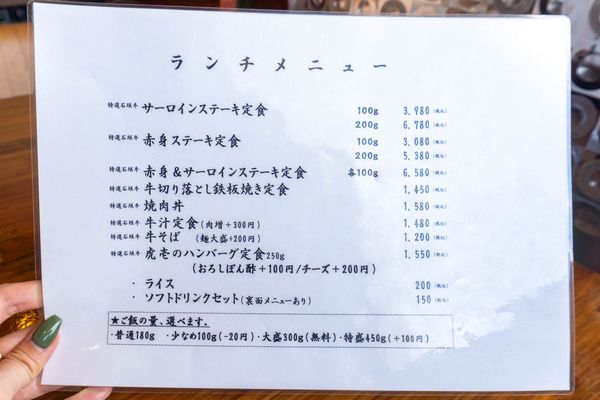 ランチメニュー
特選石垣牛 サーロインステーキ定食 100g 3,980(税込)
200g 6,780(税込)
特選石垣牛 赤身ステーキ定食 100g 3,080(税込)
200g 5,380(税込)
特選石垣牛 赤身&サーロインステーキ定食 各100g 6,580(税込)
特選石垣牛 牛切り落とし鉄板焼き定食 1,450(税込)
特選石垣牛 焼肉丼 1,580(税込)
特選石垣牛 牛汁定食(肉増+300円) 1,480(税込)
特選石垣牛 牛そば (麺大盛+200円) 1,200(税込)
特選石垣牛 虎壱のハンバーグ定食250g 1,550(税込)
(おろしぽん酢+100円/チーズ+200円)
・ライス 200(税込)
・ソフトドリンクセット(裏面メニューあり) 150(税込)
★ご飯の量、選べます。
・普通180g ・少なめ100g(-20円)・大盛300g(無料)・特盛450g(+100円)